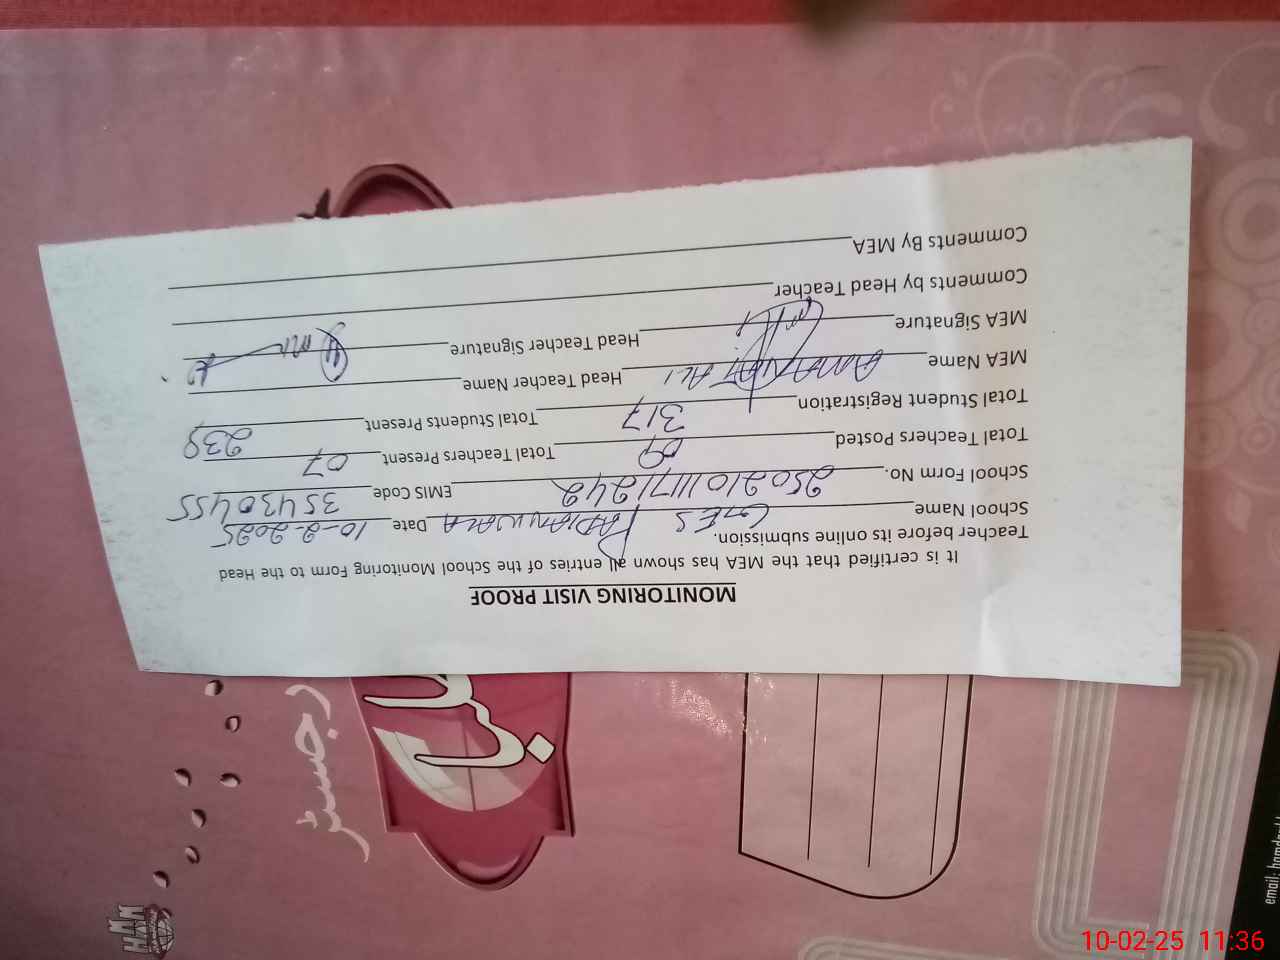 MONITORING VISIT PROOF
It is certified that the MEA has shown all entries of the School Monitoring Form to the Head
Teacher before its online submission.
School Name GES PADIANWALA Date 10-2-2025
School Form No. 250210111171242 EMIS Code 35430455
Total Teachers Posted 09 Total Teachers Present 07
Total Student Registration 317 Total Students Present 239
MEA Name AMANAT ALI Head Teacher Name
MEA Signature Head Teacher Signature
Comments by Head Teacher
Comments By MEA
رجسٹر
email:
10-02-25 11:36